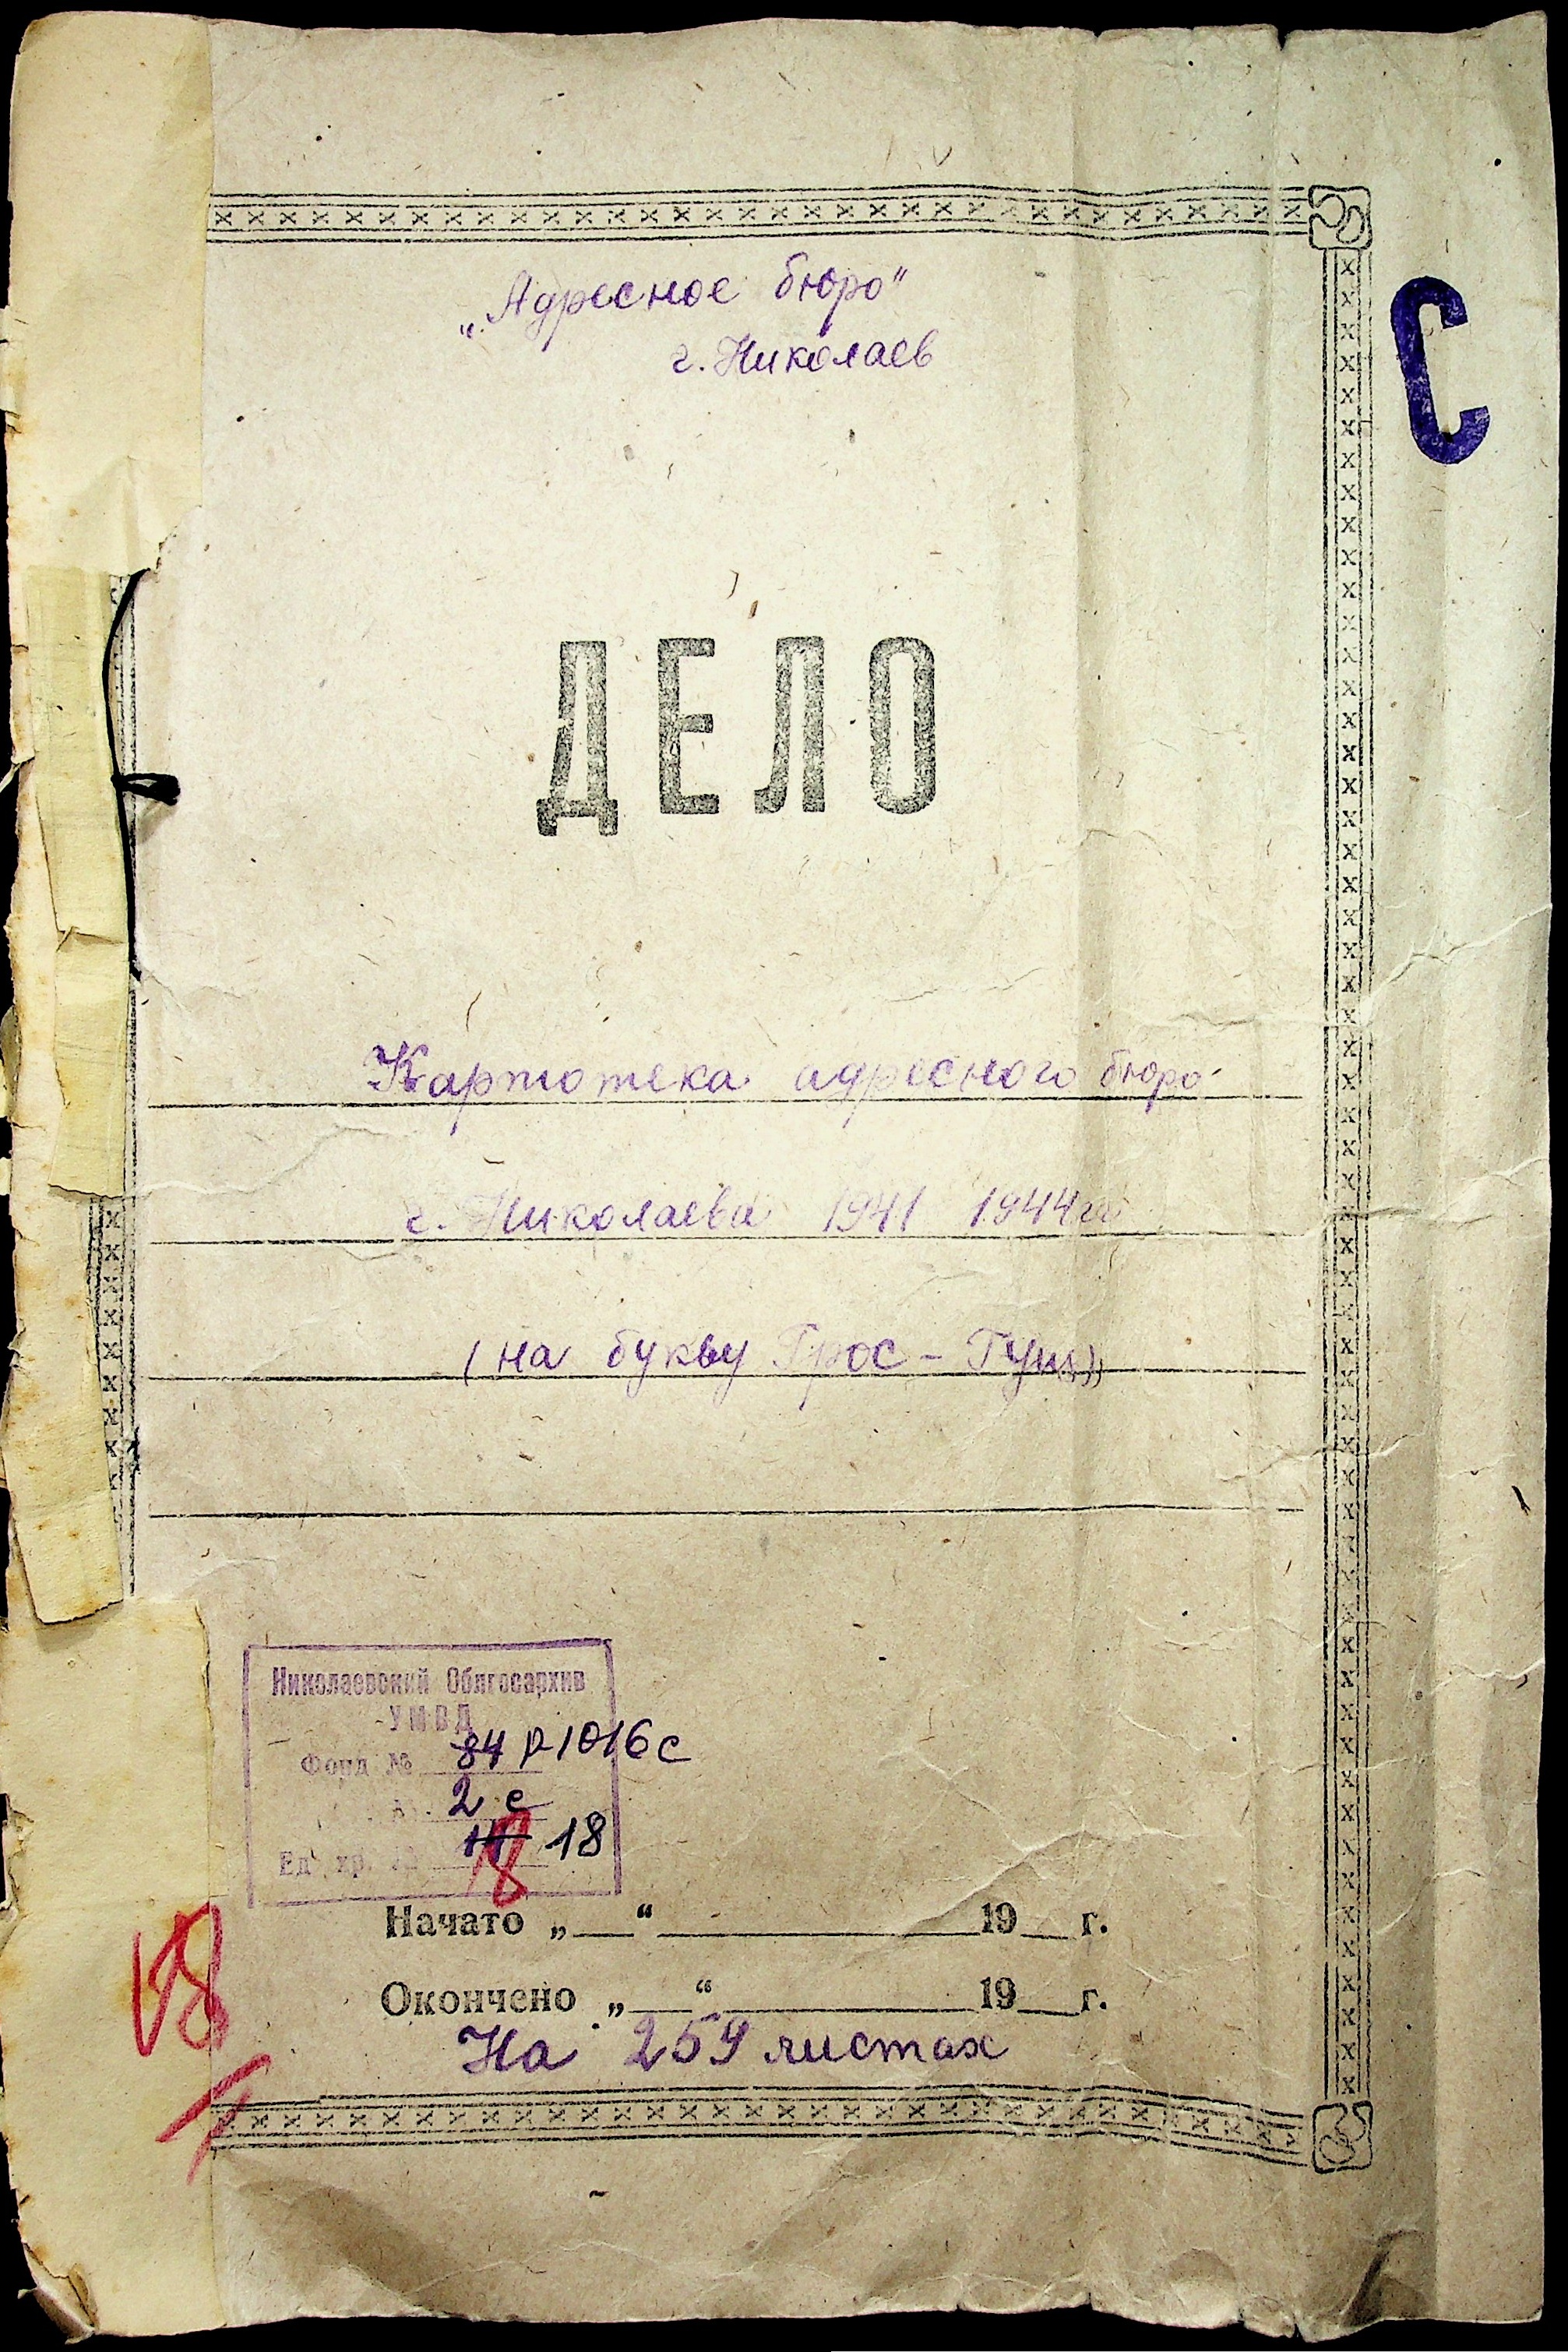 „Адресное бюро"
г. Николаев
С
ДЕЛО
Картотека адресного бюро
г. Николаева 1941 1944гг
(на букву Грос - Гущ)
Николаевский Облгосархив
УМВД
Фонд № 84 Р-1016с
2 с
Ед. хр. № 14 18
18
Начато „__" ____ 19__г.
18
Окончено „__" ____ 19__г.
На 259 листах